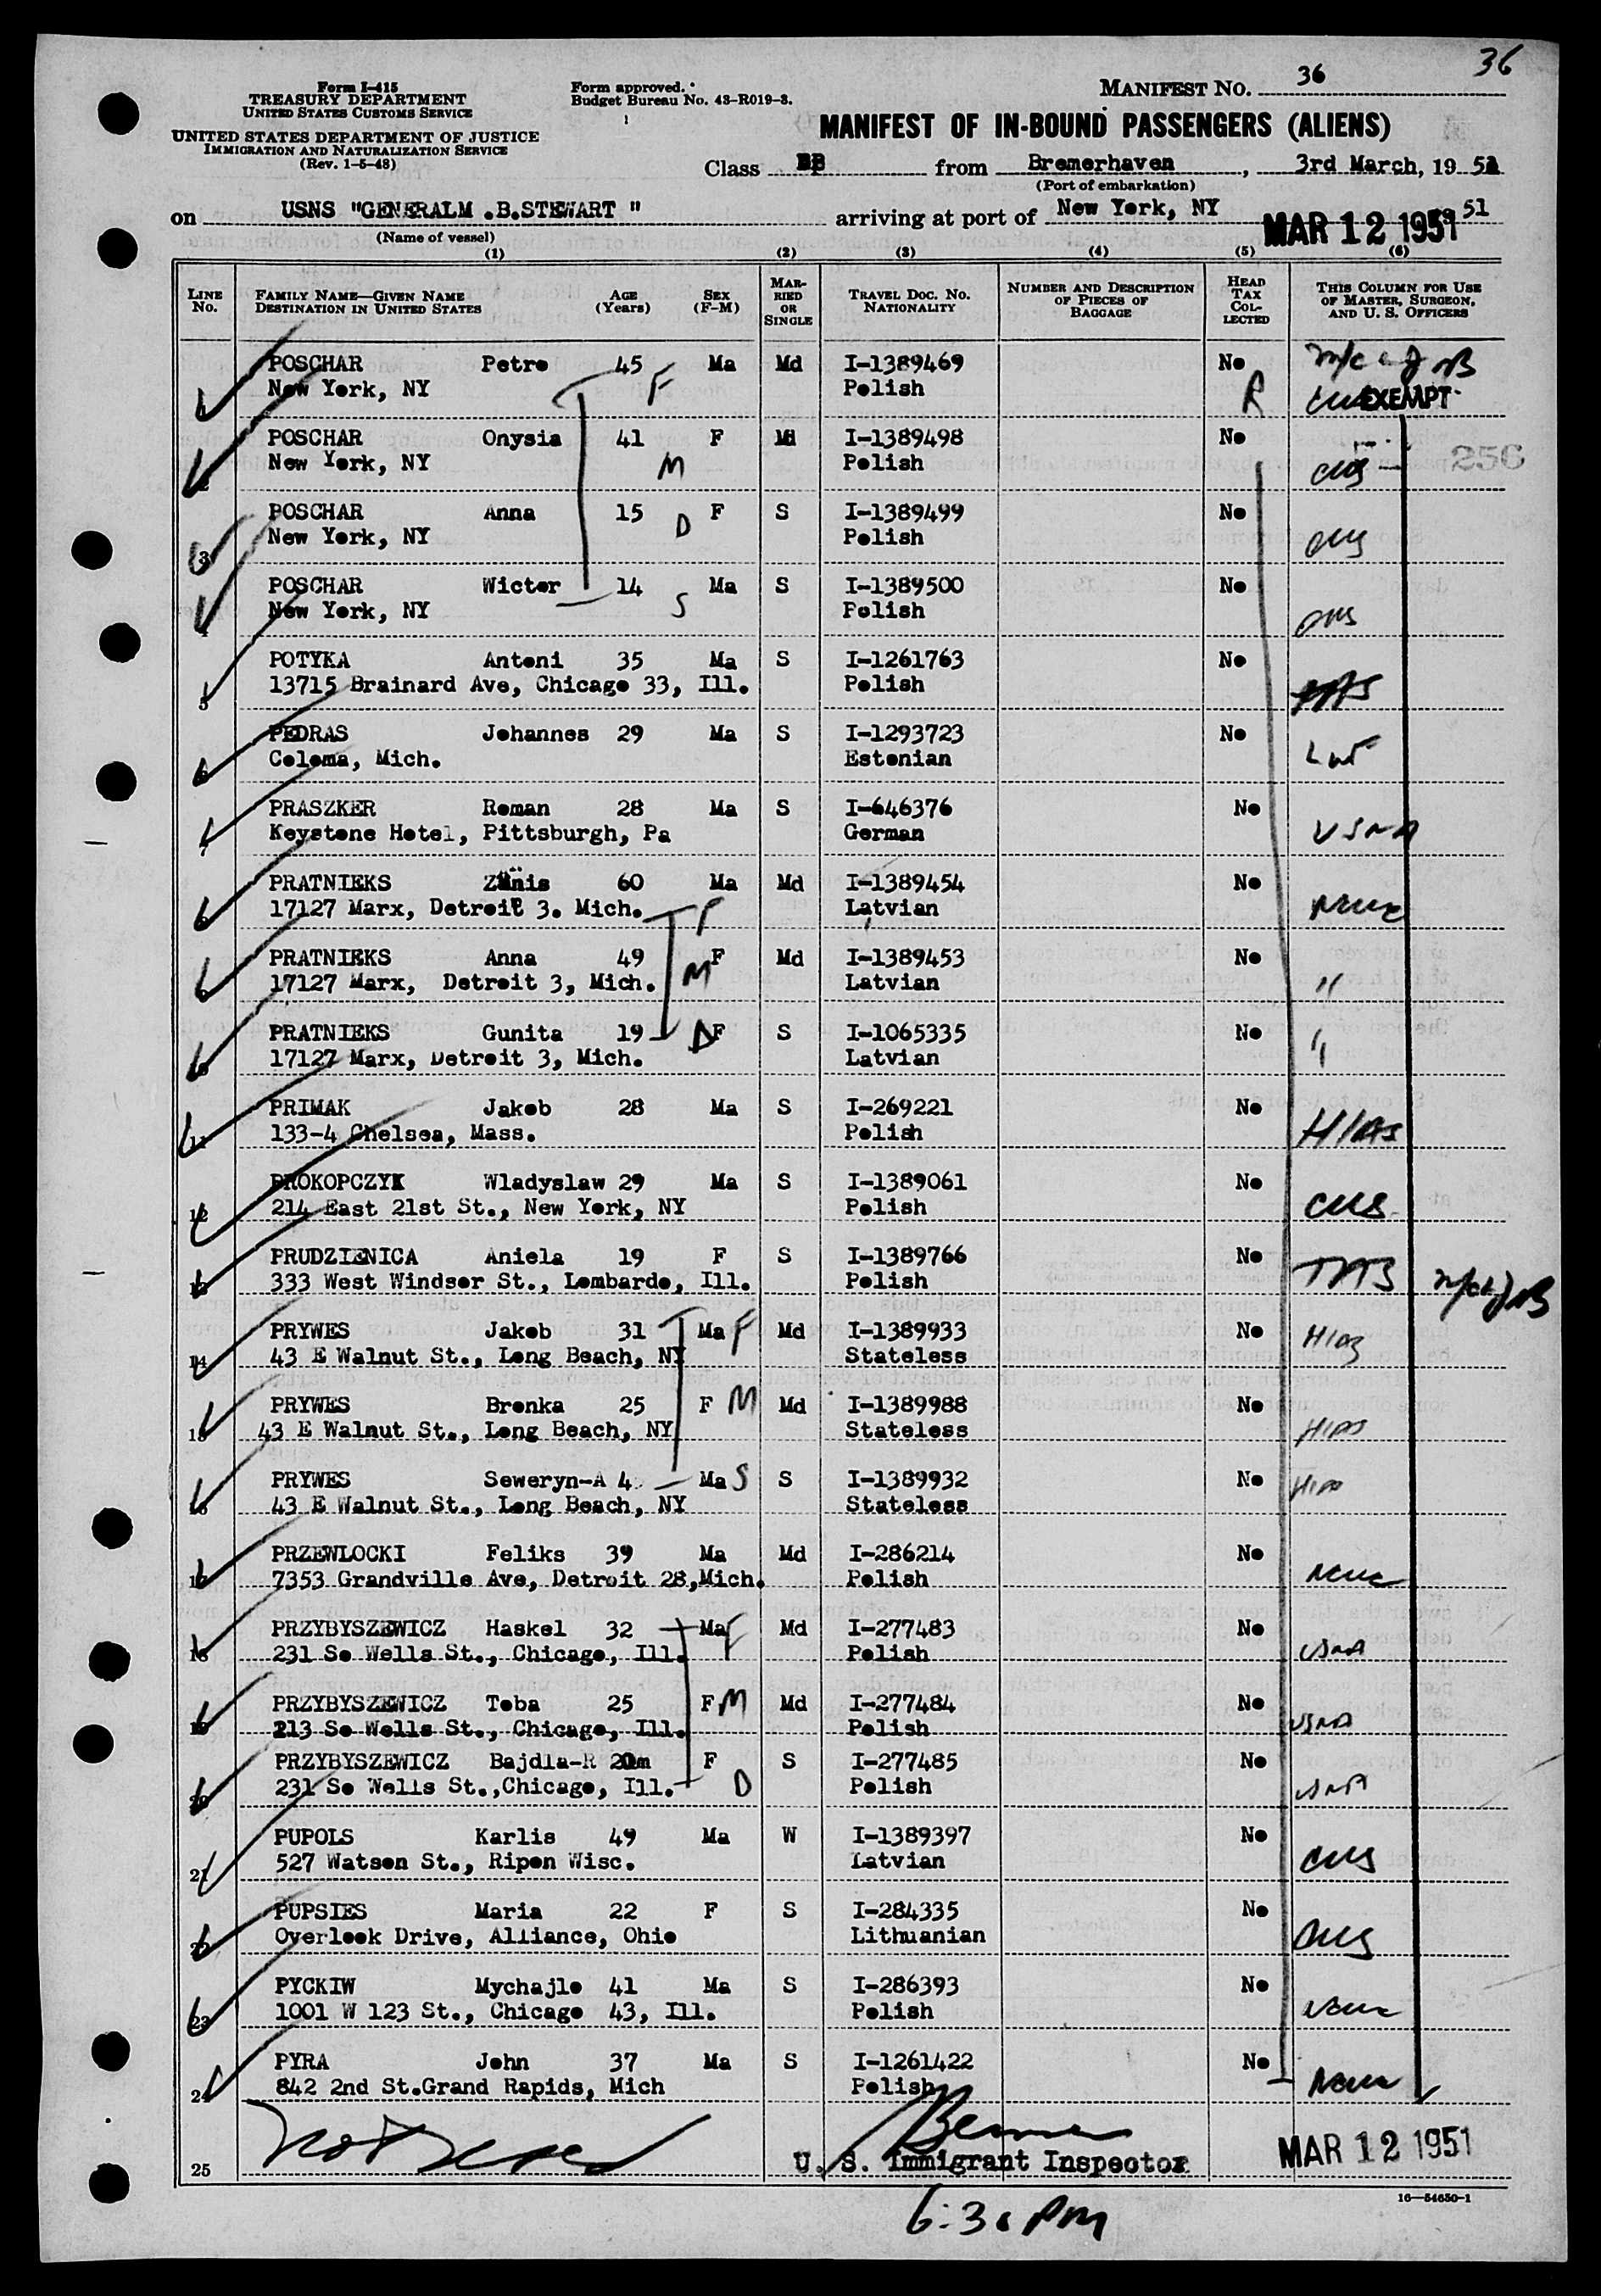 36
Form I-415
TREASURY DEPARTMENT
UNITED STATES CUSTOMS SERVICE
UNITED STATES DEPARTMENT OF JUSTICE
IMMIGRATION AND NATURALIZATION SERVICE
(Rev. 1-5-48)
Form approved.
Budget Bureau No. 43-R019-3.
MANIFEST NO. 36
MANIFEST OF IN-BOUND PASSENGERS (ALIENS)
Class from Bremerhaven, 3rd March, 19 51
(Port of embarkation)
on USNS "GENERALM .B.STEWART " arriving at port of New York, NY MAR 12 1951 51
(Name of vessel)
(1) (2) (3) (4) (5) (6)
LINE NO. FAMILY NAME—GIVEN NAME DESTINATION IN UNITED STATES AGE (Years) SEX (F-M) MARRIED OR SINGLE TRAVEL DOC. NO. NATIONALITY NUMBER AND DESCRIPTION OF PIECES OF BAGGAGE HEAD TAX COLLECTED THIS COLUMN FOR USE OF MASTER, SURGEON, AND U. S. OFFICERS
POSCHAR Petro 45 F Ma Md I-1389469 No
1 New York, NY Polish R EXEMPT
POSCHAR Onysia 41 F Md I-1389498 No
2 New York, NY M Polish 256
POSCHAR Anna 15 D F S I-1389499 No
3 New York, NY Polish
POSCHAR Wictor 14 Ma S I-1389500 No
4 New York, NY S Polish
POTYKA Antoni 35 Ma S I-1261763 No
5 13715 Brainard Ave, Chicago 33, Ill. Polish
PEDRAS Johannes 29 Ma S I-1293723 No
6 Coloma, Mich. Estonian LWF
PRASZKER Roman 28 Ma S I-646376 No
7 Keystone Hotel, Pittsburgh, Pa German USNA
PRATNIEKS 60 Ma Md I-1389454 No
8 17127 Marx, Detroit 3. Mich. F Latvian
PRATNIEKS Anna 49 M F Md I-1389453 No
9 17127 Marx, Detroit 3, Mich. Latvian "
PRATNIEKS Gunita 19 D F S I-1065335 No "
10 17127 Marx, Detroit 3, Mich. Latvian
PRIMAK Jakob 28 Ma S I-269221 No
11 133-4 Chelsea, Mass. Polish HIAS
PROKOPCZYK Wladyslaw 29 Ma S I-1389061 No
12 214 East 21st St., New York, NY Polish
PRUDZIENICA Aniela 19 F S I-1389766 No
13 333 West Windsor St., Lombardo, Ill. Polish
PRYWES Jakob 31 Ma F Md I-1389933 No HIAS
14 43 E Walnut St., Long Beach, NY Stateless
PRYWES Bronka 25 F M Md I-1389988 No
15 43 E Walnut St., Long Beach, NY Stateless HIAS
PRYWES Seweryn-A 4 Ma S S I-1389932 No HIAS
16 43 E Walnut St., Long Beach, NY Stateless
PRZEWLOCKI Feliks 39 Ma Md I-286214 No
17 7353 Grandville Ave, Detroit 28, Mich. Polish
PRZYBYSZEWICZ Haskel 32 Ma F Md I-277483 No
18 231 So Wells St., Chicago, Ill. Polish USNA
PRZYBYSZEWICZ Toba 25 F M Md I-277484 No
19 213 So Wells St., Chicago, Ill. Polish USNA
PRZYBYSZEWICZ Bajdla-R F S I-277485 No
20 231 So Wells St.,Chicago, Ill. D Polish USNA
PUPOLS Karlis 49 Ma W I-1389397 No
21 527 Watson St., Ripon Wisc. Latvian
PUPSIES Maria 22 F S I-284335 No
22 Overlook Drive, Alliance, Ohio Lithuanian
PYCKIW Mychajlo 41 Ma S I-286393 No
23 1001 W 123 St., Chicago 43, Ill. Polish
PYRA John 37 Ma S I-1261422 No
24 842 2nd St.Grand Rapids, Mich Polish
25 U. S. Immigrant Inspector MAR 12 1951
16—54650-1
6:30 PM